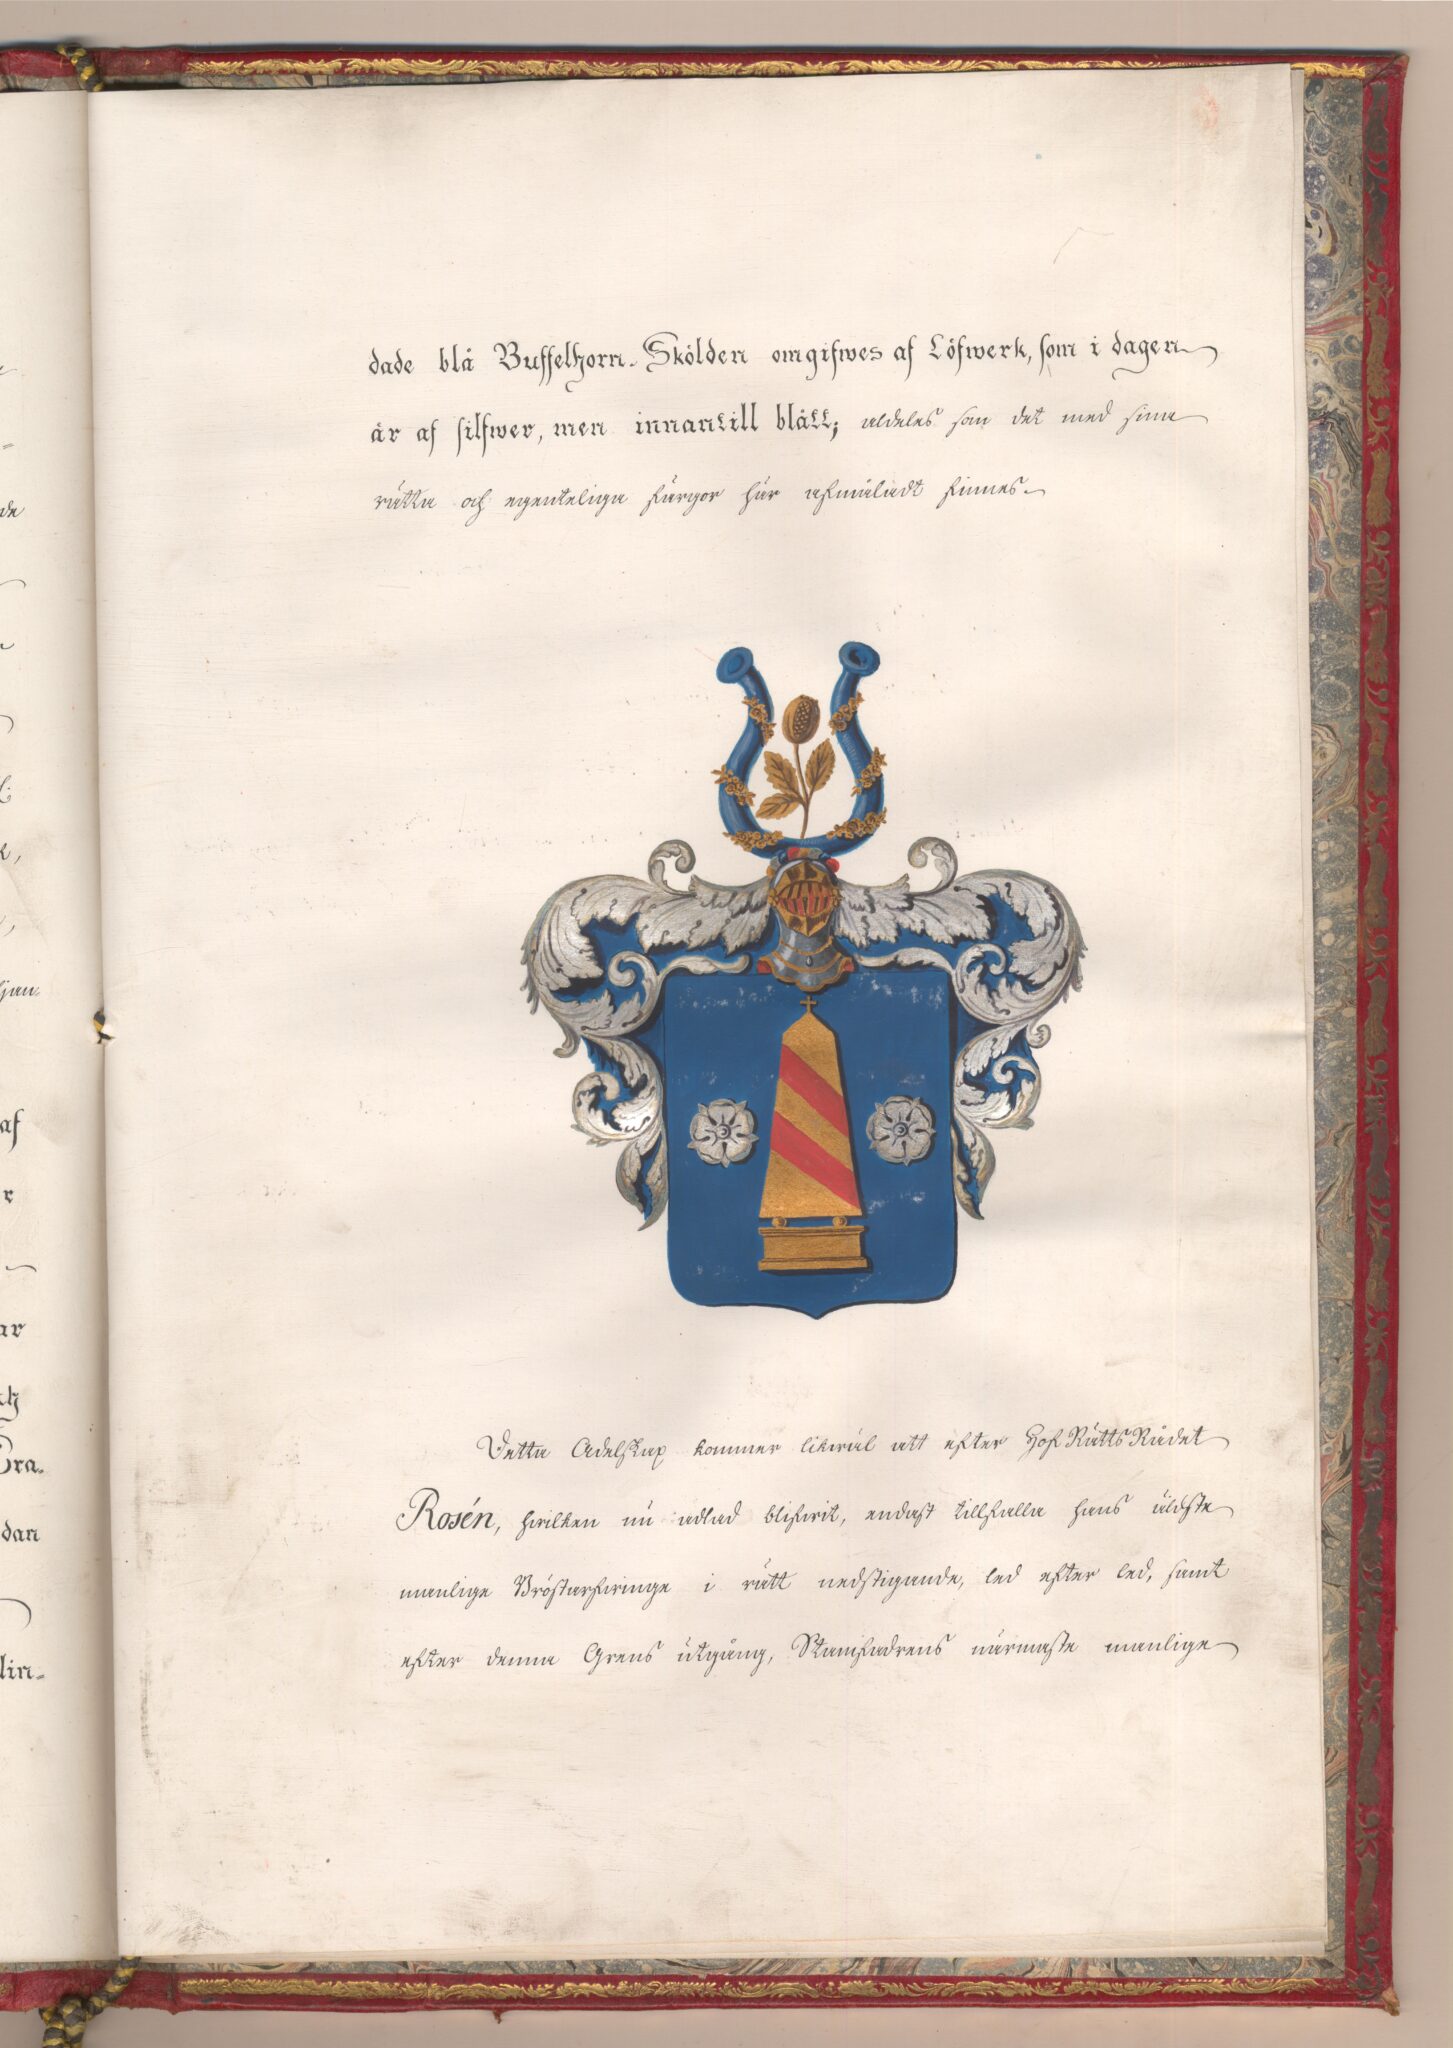 dade blå Buffelhorn. Skölden omgifwes af Löfwerk, som i dagen
är af silfwer, men innantill blått; aldeles som det med sina
rätta och egenteliga färgor här afmåladt finnes.
Detta Adelskap kommer likwäl att efter HofRättsRådet
Rosén, hwilken nu adlad blifwit, endast tillfalla hans äldste
manlige Bröstarfwinge i rätt nedstigande, led efter led, samt
efter denna Grens utgång, Stamfadrens närmaste manlige
de
af
r
ar
dan
lin-